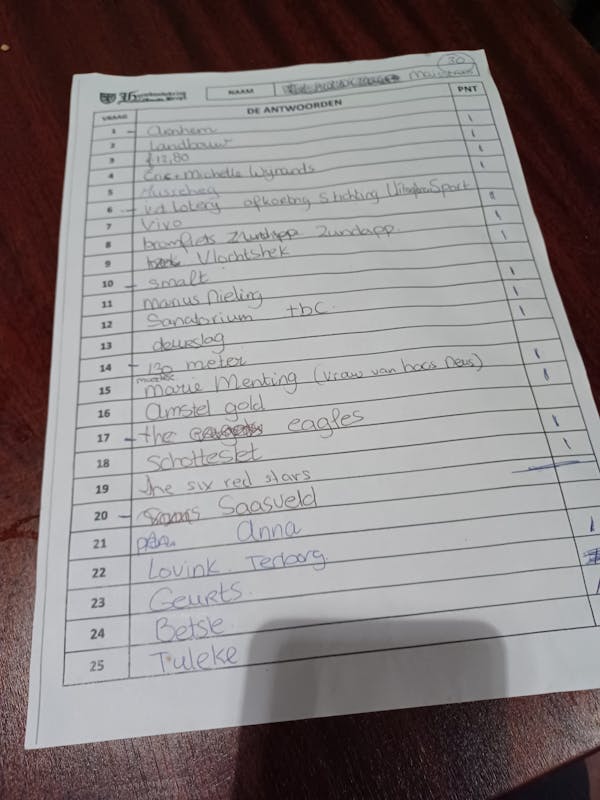 30
NAAM
VRAAG DE ANTWOORDEN PNT
1 - Arnhem
2 Landbouw 1
3 £12,80 1
4 Eric + Michelle Wynands 1
5 Musseweg 1
6 - v.d Loterij afkorting Stichting Sport
7 Vivo 11
8 bromfiets Zundapp. 1
9 Vlochtshek 1
10 - smalt
11 manus Nieling 1
12 Sanatorium tbc. 1
13 1
14 - 130 meter
15 marie Menting (vrouw van baas Neus) 1
16 Amstel gold 1
17 - the eagles
18 Schotteslet 1
19 the six red stars 1
20 - Saasveld
21 anna
22 Lovink. Terborg. 1
23 Geurts.
24 Betsie
25 Tuleke